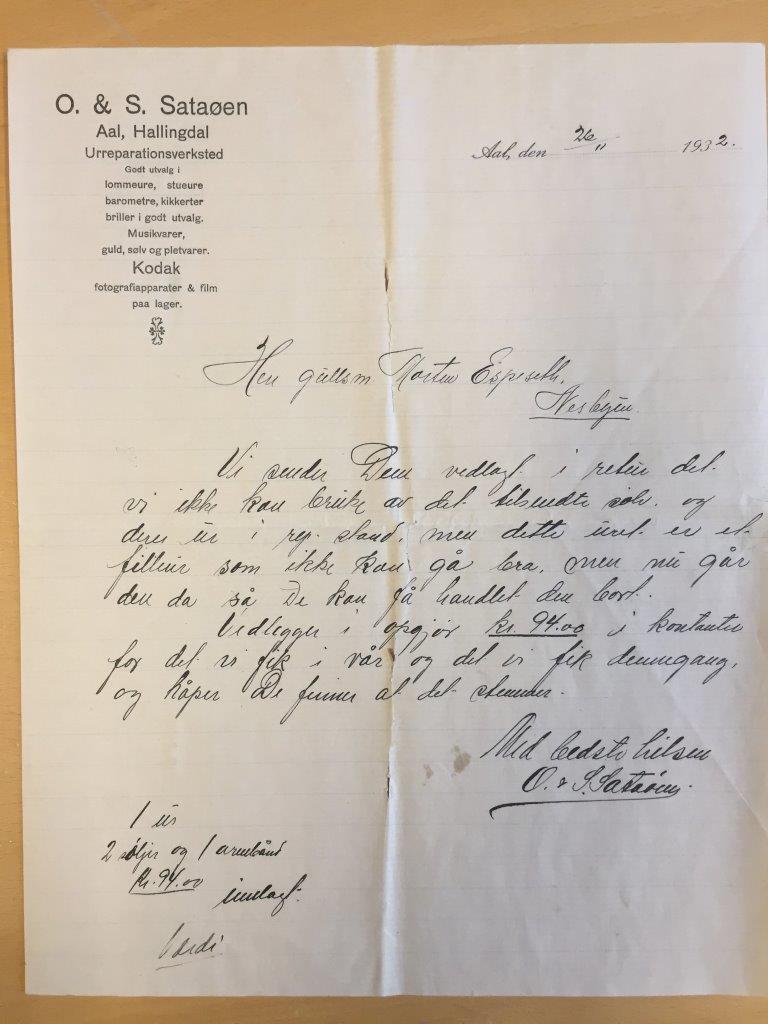 O. & S. Sataøen
Aal, Hallingdal
Urreparationsverksted
Godt utvalg i
lommeure, stueure
barometre, kikkerter
briller i godt utvalg.
Musikvarer,
guld, sølv og pletvarer.
Kodak
fotografiapparater & film
paa lager.
Aal, den 26/11 1932.
Herr gullsm. Morten Espeseth.
Nesbyen.
Vi sender Dem vedlagt i retur det
vi ikke kan bruke av det tilsendte sølv. og
deres ur i rep. stand, men dette uret er et
som ikke kan gå bra, men nu går
den da så De kan få handlet den bort.
Vedlegger i opgjør kr. 94.00 i kontanter
for det vi fik i vår og det vi fik denngang,
og håper De finner at det stemmer.
Med bedste hilsen
O. & S. Sataøen.
1 ur
2 søljer og 1 armbånd
kr. 94.00
innlagt.
Verdi